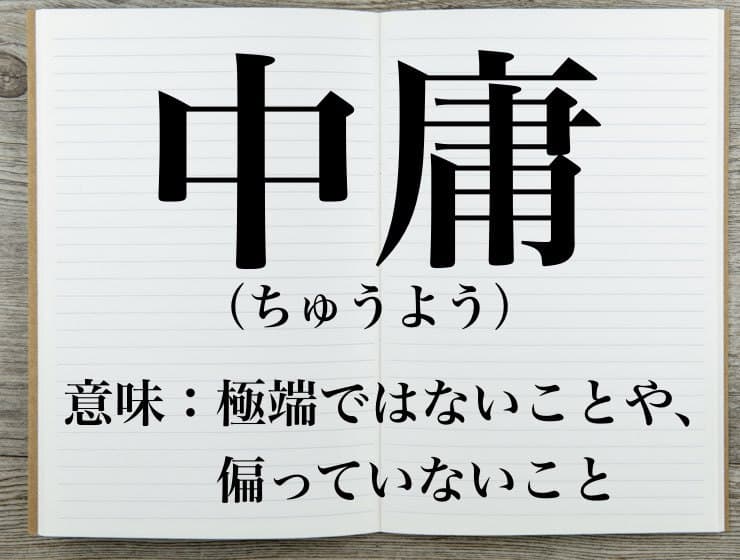 中庸
（ちゅうよう）
意味：極端ではないことや、
偏っていないこと